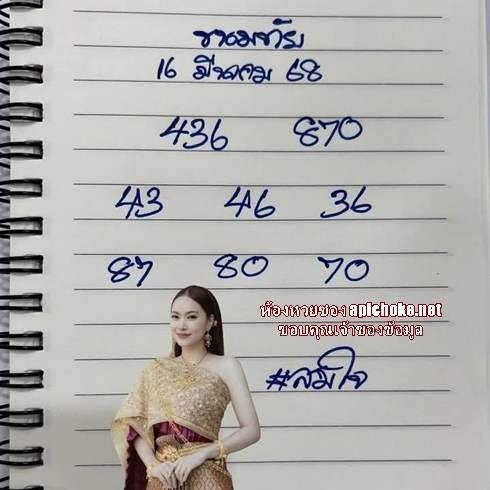 16 มีนาคม 68
436 870
43 46 36
87 80 70
ห้องหวยซอง apichoke.net
ขอบคุณเจ้าของข้อมูล
#สมใจ